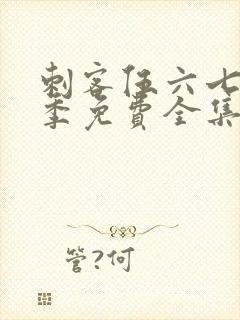 刺客伍六七
季免費全集
管?何